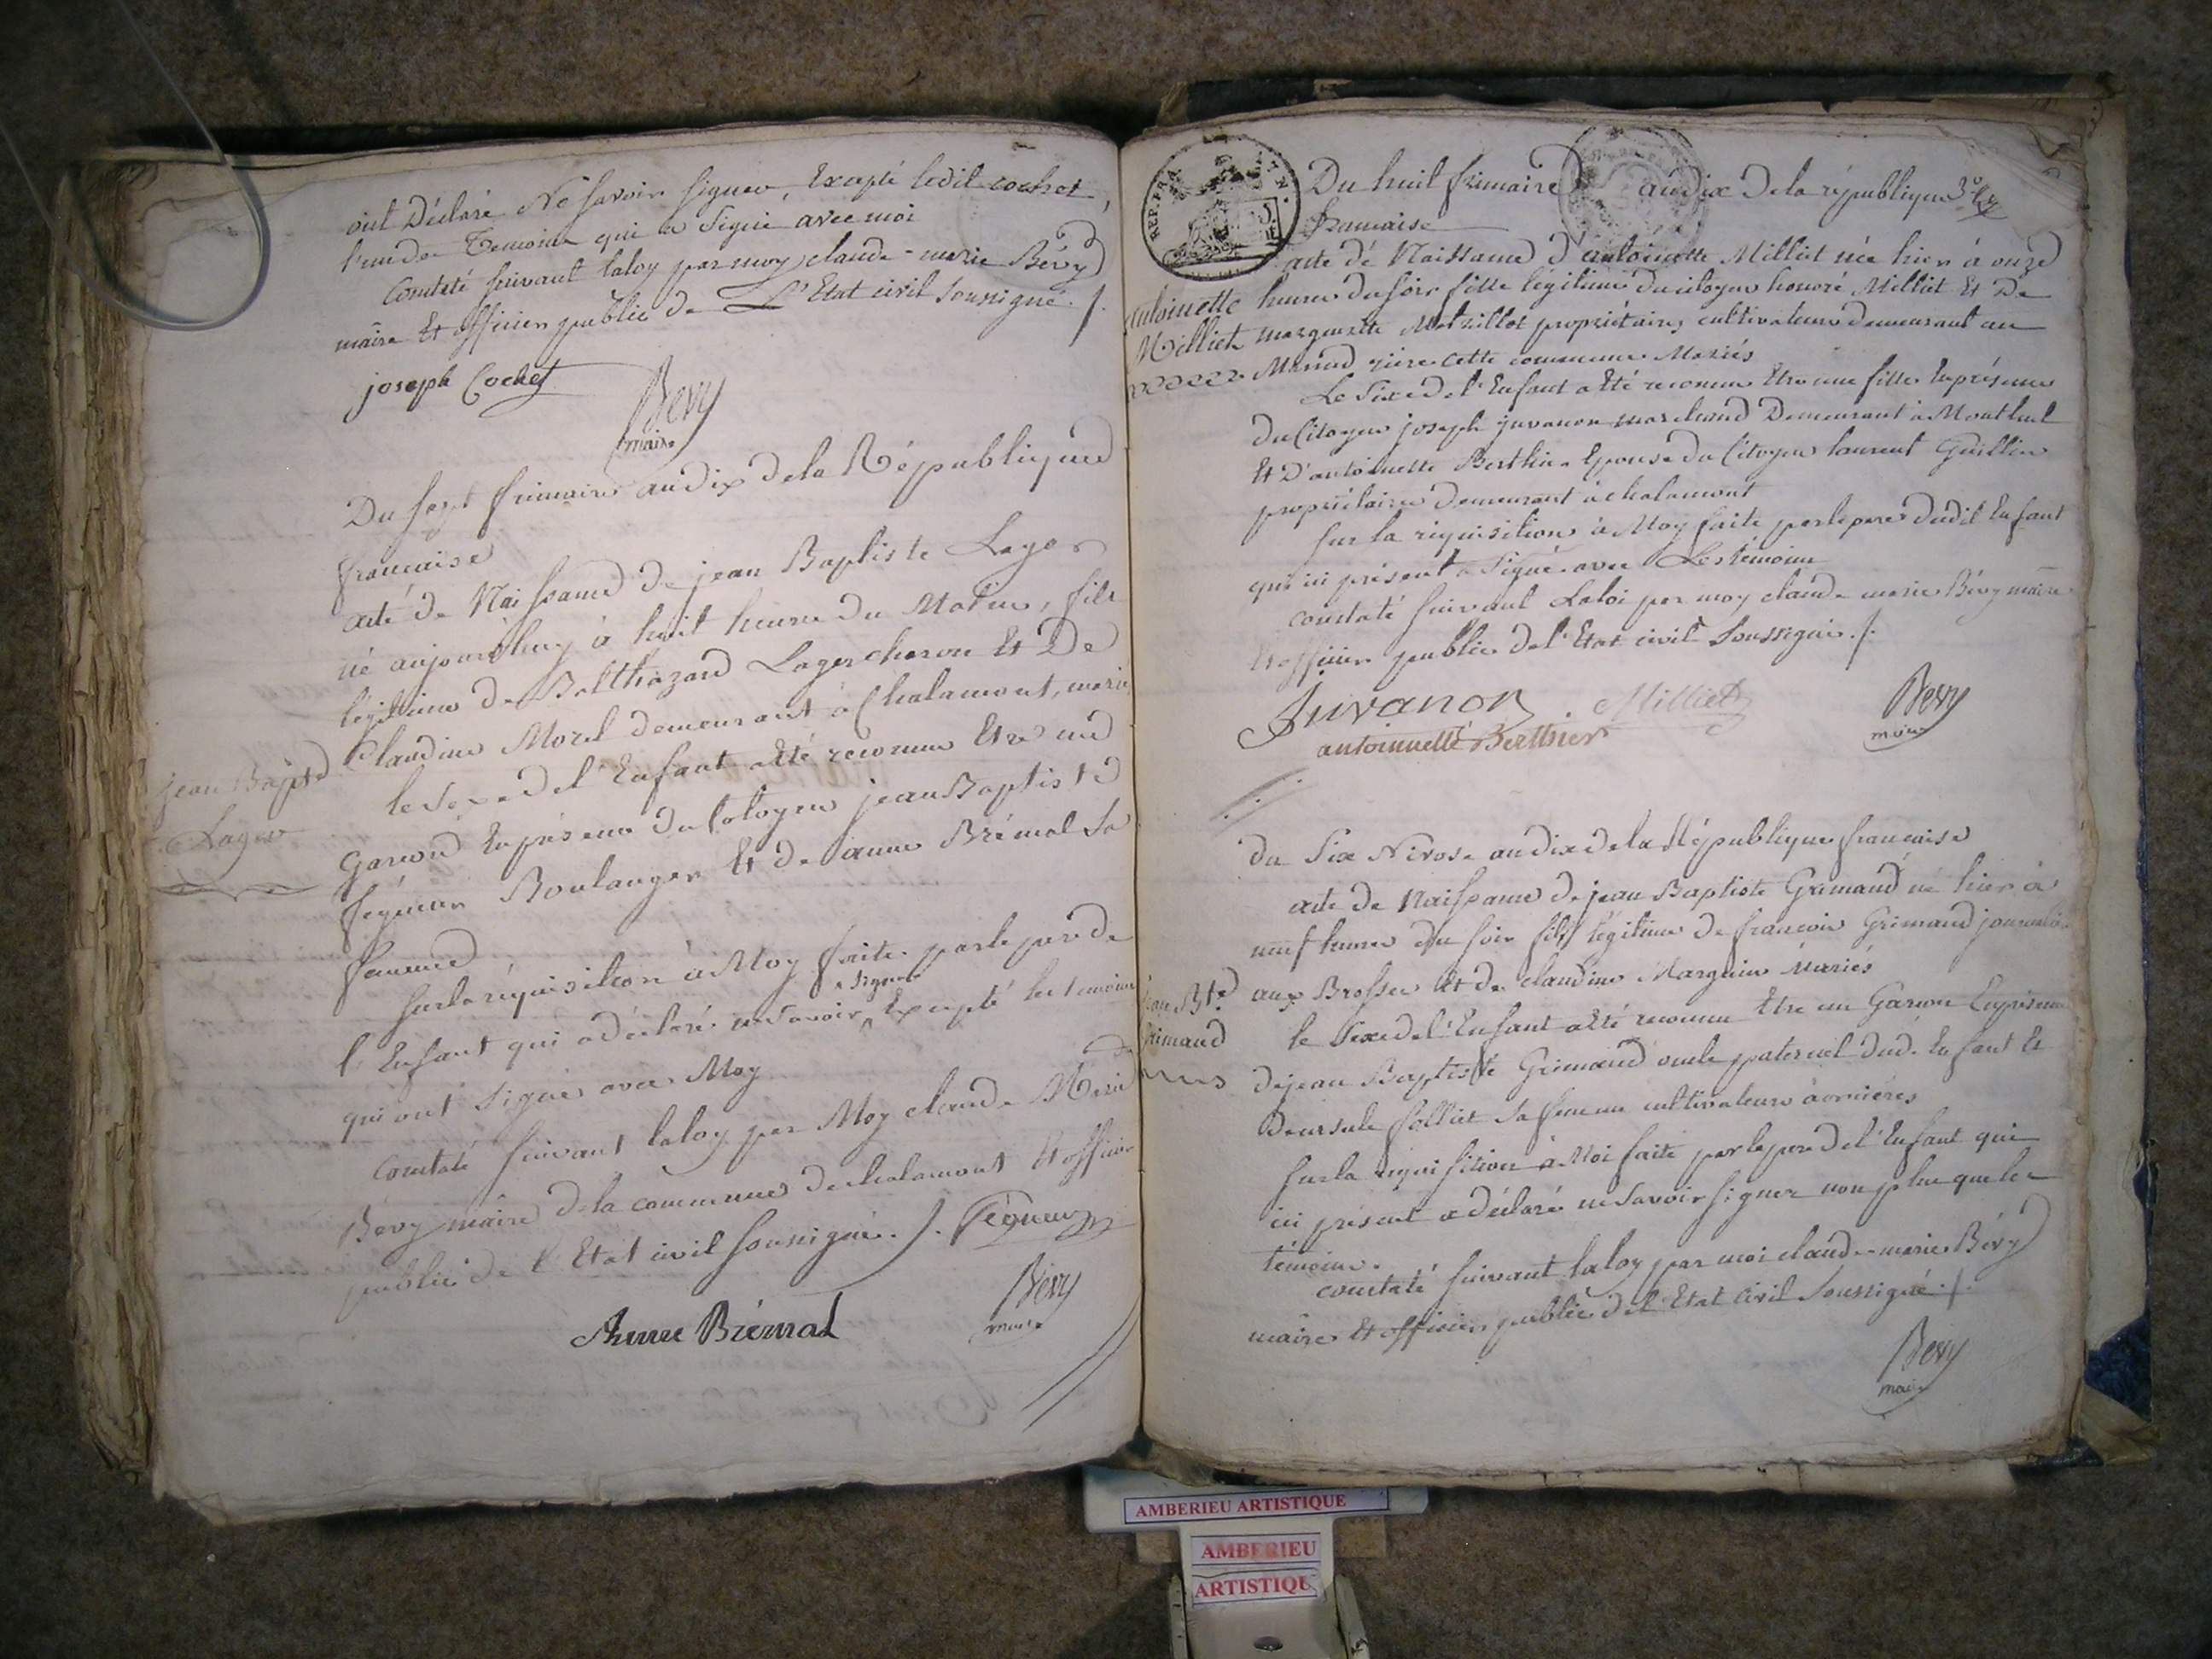 ont Déclaré Ne savoir signer Excepté ledit cochet,
l'un des Temoins qui a Signé avec moi
Constaté suivant laloy par moy claude-marie Bévy
maire Et officier public de L'Etat civil soussigné ./.
joseph Cochet
Bevy
maire
Du sept frimaire an dix de la République
française
acte de Naissance de jean Baptiste Lager
né aujourd'huy à huit heures du Matin, fils
légitime de Balthazard Lager charon Et De
Claudine Morel demeurant à Chalamont, mariés
le sexe de l'Enfant a été reconnu Etre un
Garcon En présence du Citoyen jean Baptiste
Boulanger Et de anne Brémal Sa
femme
jean Bapte
Lager
Sur la réquisition à Moy faite par le pere de
l'Enfant qui a déclaré ne savoir signer Excepté les temoins
qui ont Signé avec Moy
Constaté suivant laloy par Moy claude Marie
Bévy maire de la commune de chalamont Et officier
public de l'Etat civil soussigné ./.
Bevy
maire
Anne Brémal
REP. FRA.
Du huit frimaire an dix de la république
francaise
acte de Naissance d'antoinette Milliet née hier à onze
heures du soir fille légitime du citoyen honoré Milliet Et De
marguerite propriétaires cultivateurs demeurant au
rière cette commune Mariés
antoinette
Milliet
Le Sexe de l'Enfant a été reconnu Etre une fille En présence
du Citoyen joseph juvanon marchand Demeurant à Montluel
Et D'antoinette Berthier Epouse du Citoyen laurent Guillin
propriétaire demeurant à chalamont
sur la réquisition à Moy faite par le pere dudit Enfant
qui ici présent a Signé avec Les témoins
constaté suivant Laloi par moy claude marie Bévy maire
Et officier public de l'Etat civil Soussigné ./.
Juvanon Milliet
antoinnette Berthier
Bevy
maire
du Six Nivose an dix de la République française
acte de Naissance de jean Baptiste Grimaud né hier à
neuf heures du soir fils légitime de francois Grimaud journalier
aux Brosses Et de claudine Marguin Mariés
jean Bte
Grimaud
le Sexe de l'Enfant a été reconnu Etre un Garcon En présence
de jean Baptiste Grimaud oncle paternel dud. Enfant Et
Deursule folliet Sa femme cultivateurs à
sur la réquisition à Moi faite par le pere de l'Enfant qui
ici présent a déclaré ne Savoir signer non plus que les
témoins.
constaté suivant laloy par moi claude-marie Bévy
maire Et officier public de l'Etat civil Soussigné ./.
Bevy
maire
AMBERIEU ARTISTIQUE
AMBERIEU
ARTISTIQU